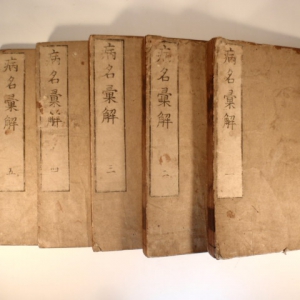 病名彙解 一
病名彙解 二
病名彙解
病名彙解 四
病名彙解 五